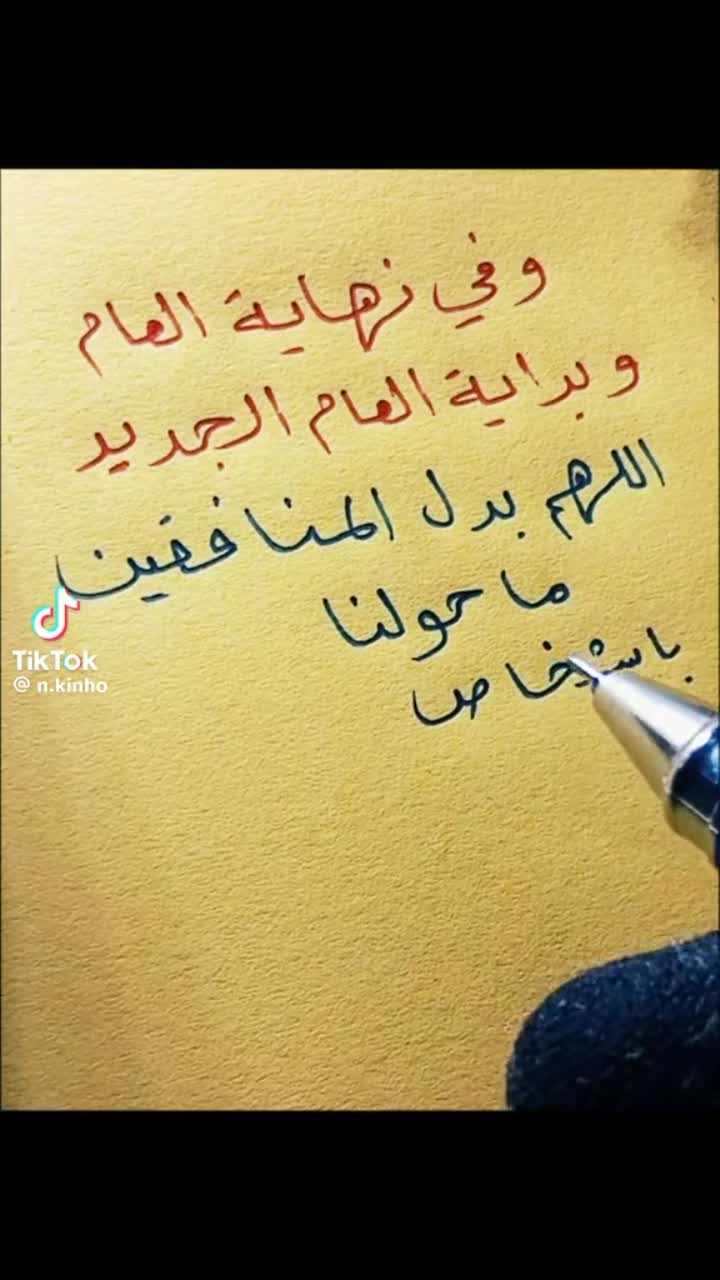 وفي نهاية العام
وبداية العام الجديد
اللهم بدل المنافقين
ما حولنا
باشخاص
TikTok
@ n.kinho